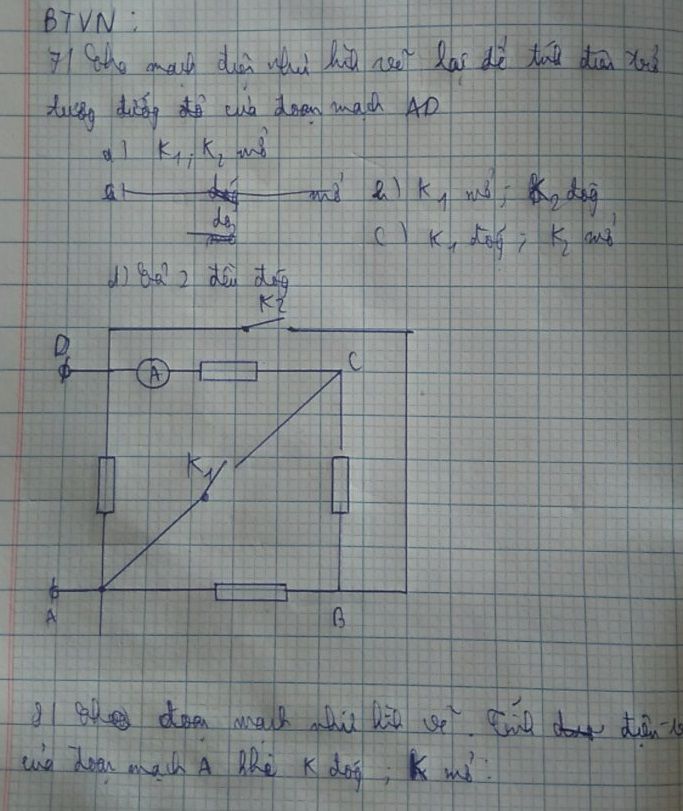 BTVN:
7) Cho mạch điện như hình vẽ lại để tính điện trở
tương đương của đoạn mạch AD
a) K1; K2 mở
b) K1 mở; K2 đóg
c) K1 đóg; K2 mở
d) Cả 2 đều đóg
K2
D
A
C
K1
A
B
8) Cho đoạn mạch như hình vẽ. Tính điện
của đoạn mạch A khi K đóg; K mở: